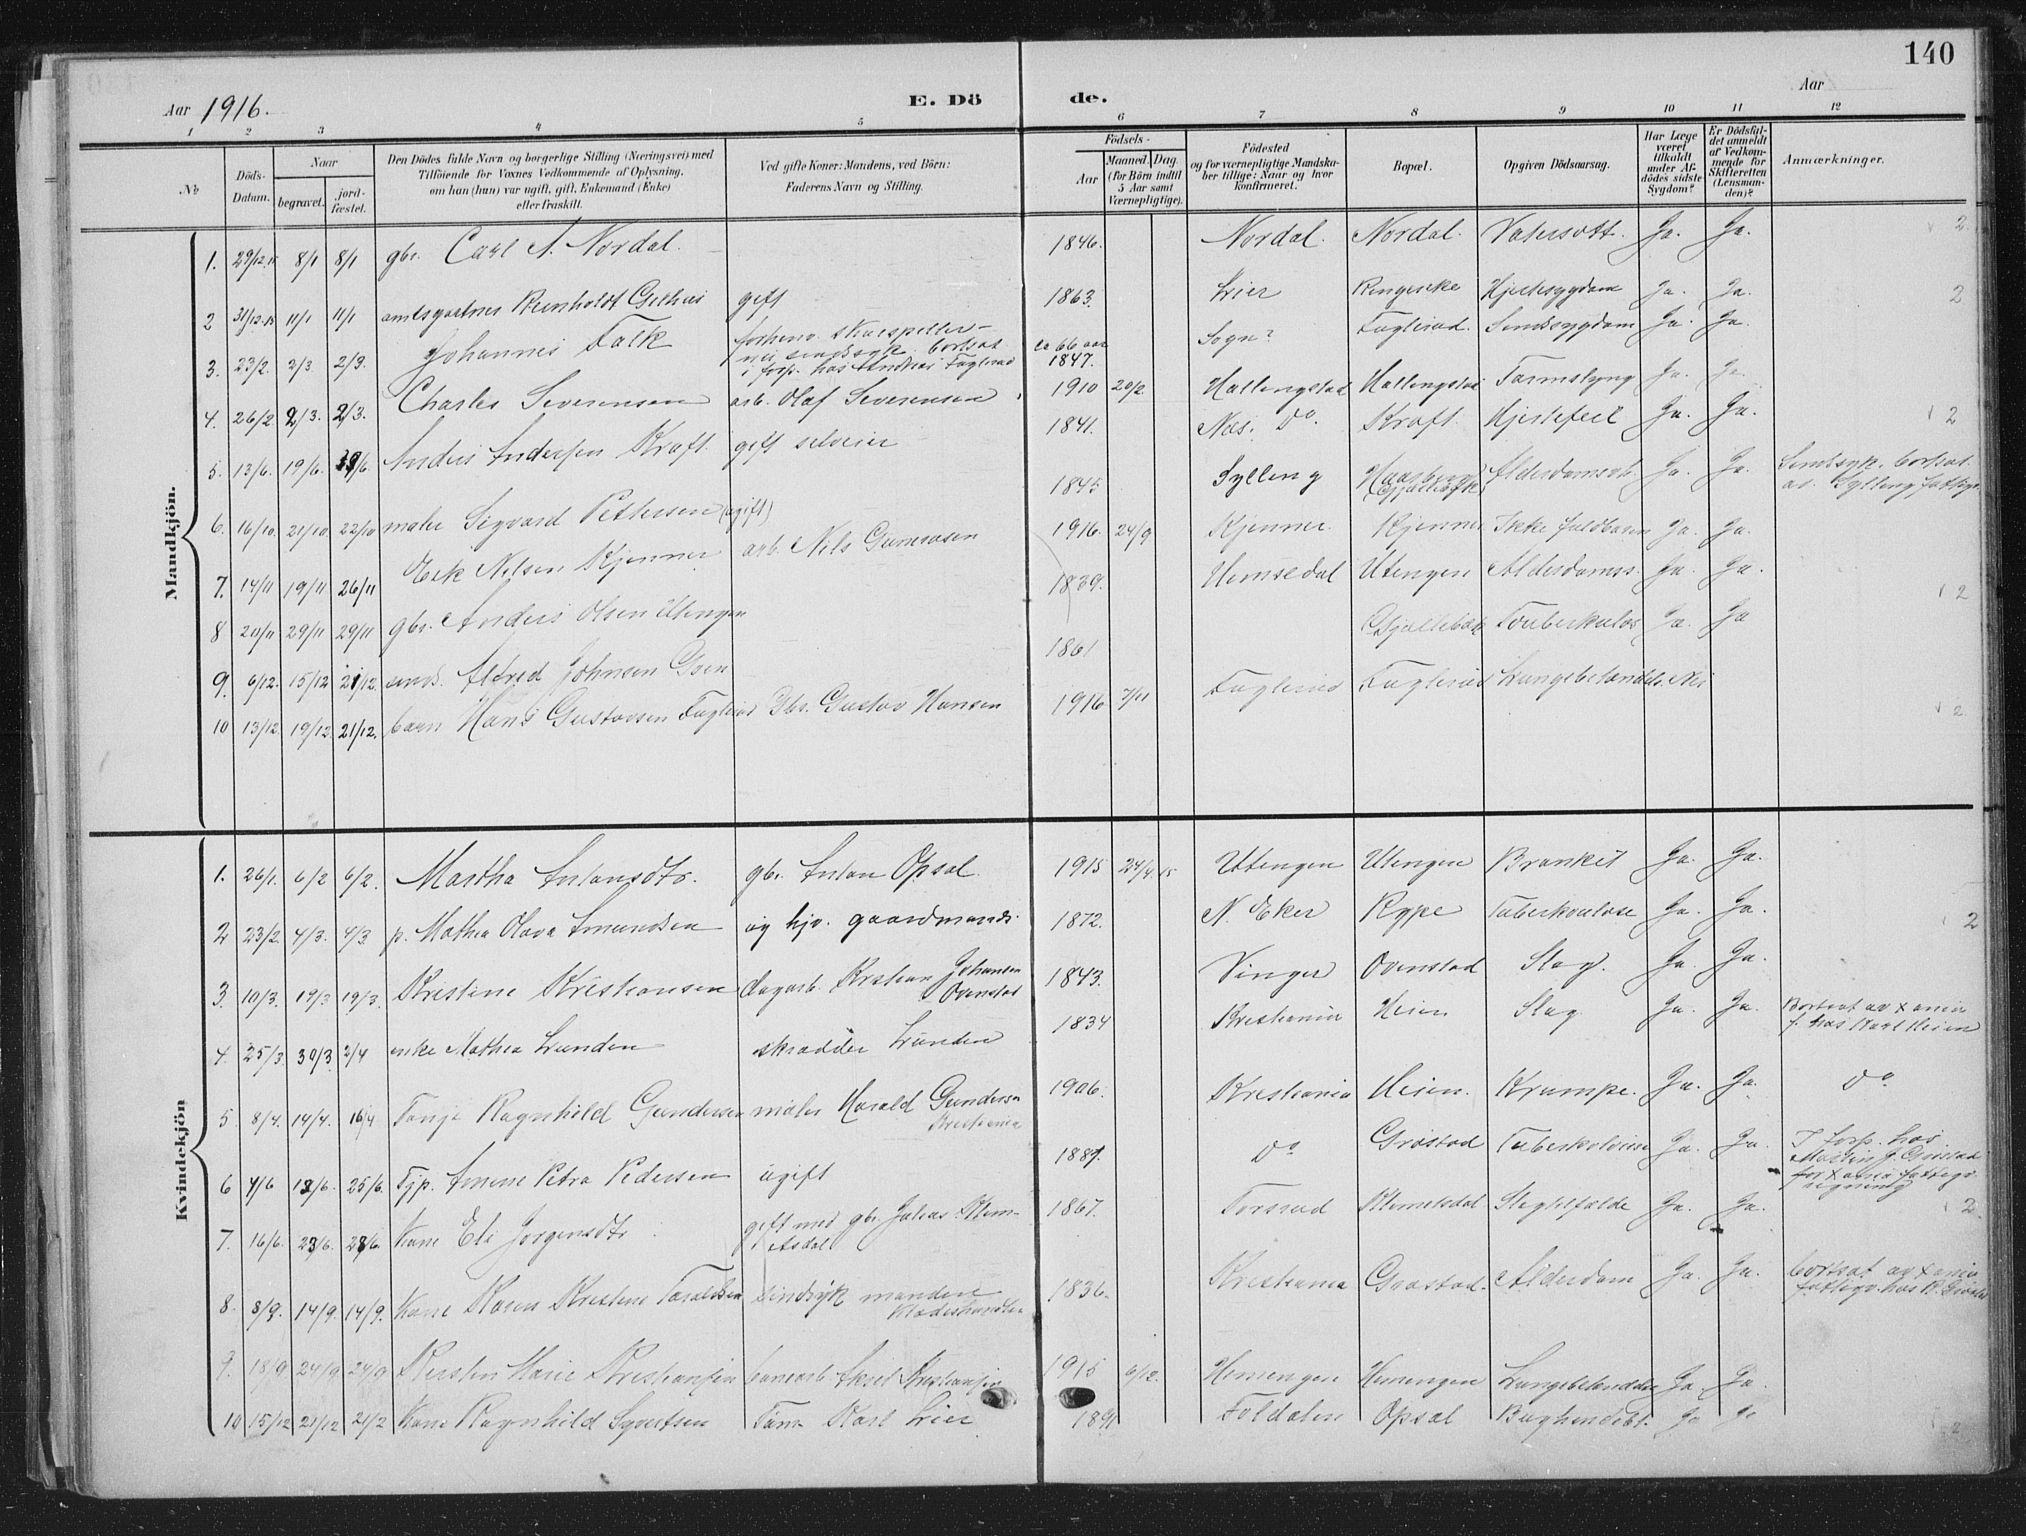 140
Aar 1916.
E. Dö de.
Aar
1 2 3 4 5 6 7 8 9 10 11 12
No
Döds-Datum.
Naar
begravet.
jord-fæstet.
Den Dödes fulde Navn og borgerlige Stilling (Næringsvei) med
Tilföiende for Voxnes Vedkommende af Oplysning,
om han (hun) var ugift, gift, Enkemand (Enke)
eller fraskilt.
Ved gifte Koner: Mandens, ved Börn:
Faderens Navn og Stilling.
Födsels-
Aar
Maaned Dag.
(for Börn indtil
5 Aar samt
Værnepligtige).
Födested
og for værnepligtige Mandska-
ber tillige: Naar og hvor
konfirmeret.
Bopæl.
Opgiven Dödsaarsag.
Har Læge
været
tilkaldt
under Af-
dödes sidste
Sygdom?
Er Dödsfal-
det anmeldt
af Vedkom-
mende for
Skifteretten
(Lensman-
den)?
Anmærkninger.
Mandkjön.
1. 29/12.15 8/1 8/1 gbr. Carl A. Nordal. 1846. Nordal. Nordal. Vatersott. Ja. Ja. 2.
2 31/12.15 11/1 11/1 amtsgartner Reinholdt gift 1863. Lier Ringerike Hjertesygdom Ja. Ja. 2
3. 23/2. 2/3 2/3. Johannes Falk forhenv. skuespiller- ca 66 aar 1847. Sogn? Fuglerud. Sindssygdom Ja. Ja.
i forp. hos Andreas Fuglerud
4. 26/2 2/3. 2/3. Charles Severensen arb. Olaf Severensen 1910 20/2 Hallingstad Hallingstad Tarmslyng Ja. Ja.
5. 13/6. 19/6. 19/6 Anders Andersen Kraft. gift selveier 1841. Nes. Do. Kraft. Hjertefeil Ja. Ja. 2
6. 16/10. 21/10. 22/10 maler Sigvard Pettersen (ugift) 1845 Sylling Gjellebek Alderdomssv. Ja. Ja. Sindssyk. bortsat
av Sylling fattigv.
7. 14/11 19/11 26/11 Erik Nilsen Kjenner arb. Nils 1916. 24/9 Kjenner. Kjenner Ikke fuldbaaren Ja. Ja.
8 20/11 29/11 29/11 gbr. Anders Olsen Utengen 1839. Hemsedal Utengen Alderdomss. Ja. Ja. 2
9. 6/12. 15/12 21/12. Alfred Johnsen 1861 Gjellebek Touberkulos Ja. Ja
10 13/12. 19/12. 21/12. barn Hans Gustavsen Fuglerud Gbr. Gustav Hansen 1916 7/11 Fuglerud Fuglerud Lungebetændels. Nei 2.
Kvindekjön
1. 26/1. 6/2 6/2. Martha Antonsdtr. gbr. Anton Opsal. 1915 24/4 15 Uttengen Utengen Bronkit Ja. Ja.
2 23/2. 4/3. 4/3 p. Mathea Olava Amundsen ug hjv. gaardmands. 1872. N. Eker Rype Tuberkoulose Ja. Ja. 2
3. 10/3. 19/3 19/3. Kristine Kristiansen dagarb. Kristian Johansen
Ovenstad 1843. Vinger Ovenstad Slag. Ja. Ja.
4. 25/3. 30/3. 2/4 enke Mathea Lunden skrædder Lunden 1834 Kristiania Heien Slag Ja. Ja. Bortsat av X ania
f. hos Karl Heien
5. 8/4. 14/4. 16/4 Tanja Ragnhild Gundersen maler Harald Gundersen
Kristiania 1906. Kristiania Heien. Krampe. Ja. Ja. Do
6 7/6 13/6. 25/6. Tjp. Amene Petra Pedersen ugift 1889. Do Grøstad Tuberkoulose Ja. Ja. I forp. hos
Martin J. Grøstad
for X ania fattigv.
regning
7. 16/6. 23/6. 23/6. Kone Eli Jorgensdtr gift med gbr. Julius Klem-
etsdal 1867. Torsrud Klemetsdal Slagtilfælde Ja. Ja. 2.
8. 8/9. 14/9. 14/9. Kone Karen Kristine Taraldsen Sindsyk manden
Klædeshandler 1836. Kristiania Grøstad. Alderdom Ja. Ja. bortsat av X ania
fattigv. hos
9. 18/9. 24/9. 24/9 Kirsten Marie Kristiansen banearb. Aksel Kristiansen 1915 6/12. Hemengen Hemengen Lungebetændelse Ja Ja
10 15/12 21/12 21/2 Kone Ragnhild Syvertsen Karl Lier Foldalen Opsal Bughindebt. Ja Ja 2